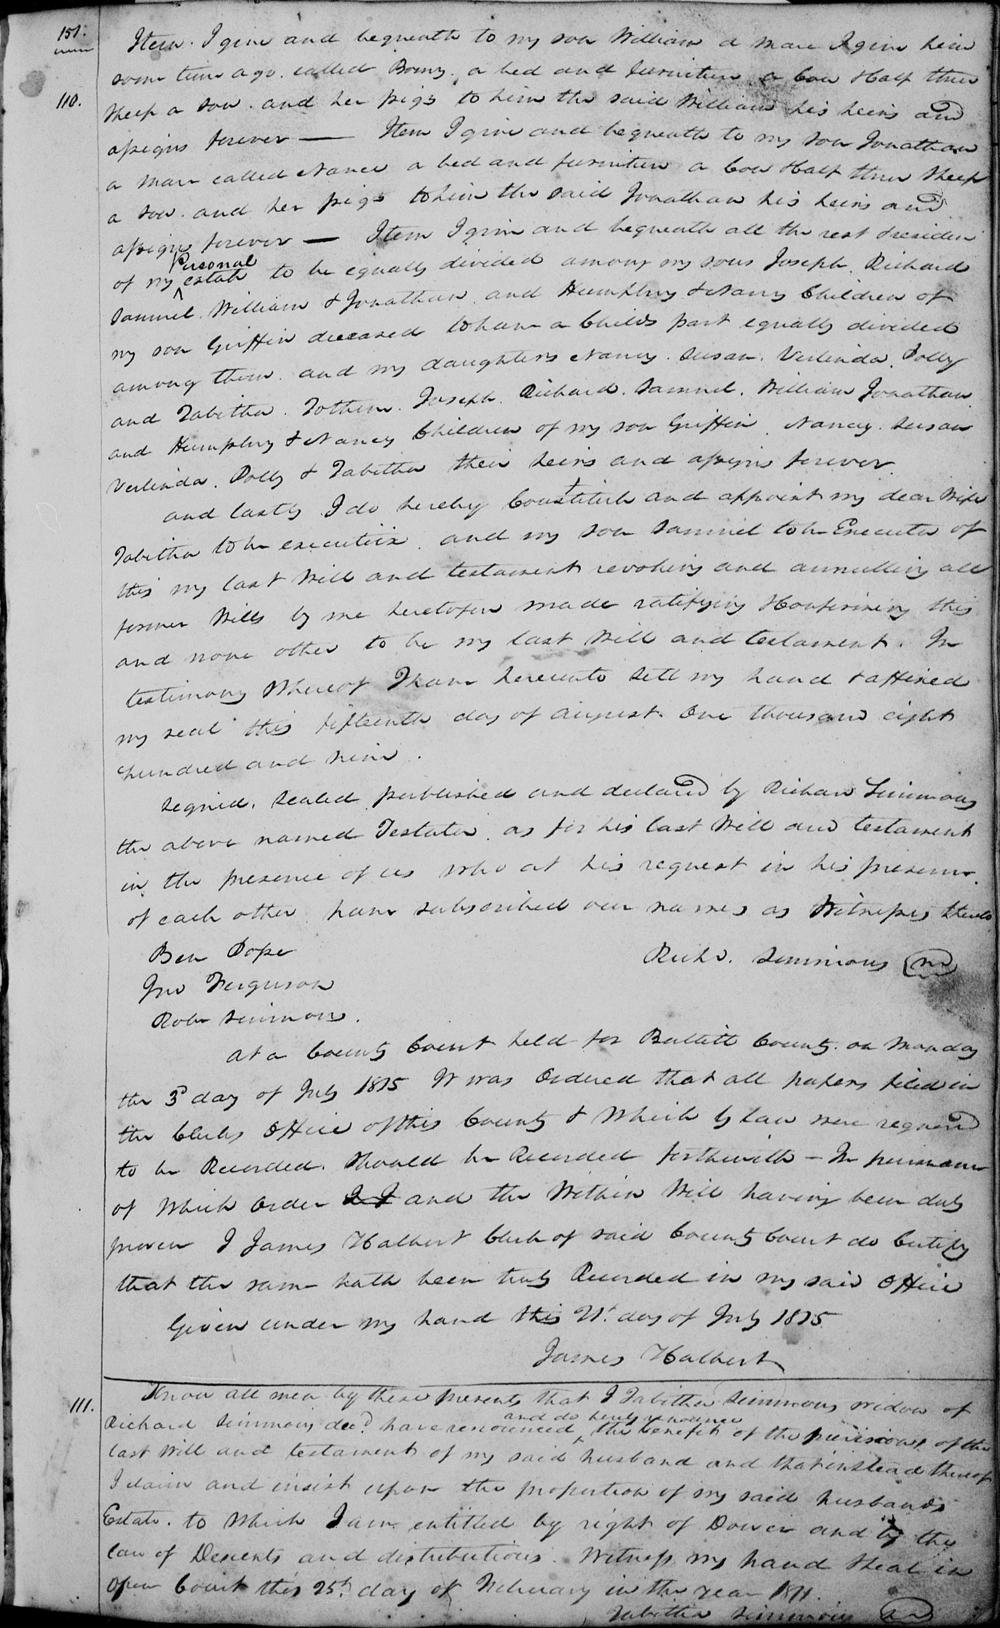 151.
Item. I give and bequeath to my son William a mare I give him
some time ago. called Bony. a bed and furniture a Cow & Calf three
110.
Sheep a sow. and her pigs to him the said William his heirs and
assigns forever — Item I give and bequeath to my son Jonathan
a mare called Nance a bed and furniture a Cow & Calf three Sheep
a sow. and her pigs to him the said Jonathan his heirs and
assigns forever — Item I give and bequeath all the rest & residue
of my Personal estate to be equally divided among my sons Joseph. Richard
Samuel. William & Jonathan. and Humphry & Nancy Children of
my son Griffin deceased to have a Childs part equally divided
among them. and my daughters Nancy. Susan. Verlinda. Polly
and Tabitha. To them. Joseph. Richard. Samuel. William Jonathan
and Humphry & Nancy Children of my son Griffin. Nancy. Susan
Verlinda. Polly & Tabitha their heirs and assigns forever.
and lastly I do hereby Constitute and appoint my dear Wife
Tabitha to be executrix. and my son Samuel to be Executor of
this my last Will and testament revoking and annulling all
former Wills by me heretofore made ratifying & Confirming this
and none other to be my last Will and testament. In
testimony Whereof I have hereunto sett my hand & affixed
my seal this fifteenth day of August. One thousand eight
hundred and nine.
Signed, Sealed published and declared by Richard Simmons
the above named Testator. as for his last Will and testament
in the presence of us who at his request in his presence
of each other have subscribed our names as Witnesses thereto
Ben Pope
Richd. Simmons
Jno Ferguson
Robt Simmons.
At a County Court held for Bullitt County on Monday
the 3d day of July 1815 It was Ordered that all papers filed in
the Clerks Office of this County & Which by law were required
to be Recorded. Should be Recorded forthwith — In pursuance
of Which Order and the Within Will having been duly
proven I James Halbert Clerk of said County Court do Certify
that the same hath been truly Recorded in my said Office
Given under my hand this 21st day of July 1815
James Halbert
111.
Know all men by these presents that I Tabitha Simmons widow of
Richard Simmons decd. have renounced and do hereby renounce the benefit of the provisions of the
last Will and testament of my said husband and that instead thereof
I claim and insist upon the proportion of my said husbands
Estate. to Which I am entitled by right of Dower and by the
law of Descents and distributions. Witness my hand & seal in
Open Court this 25th day of February in the year 1811.
Tabitha Simmons